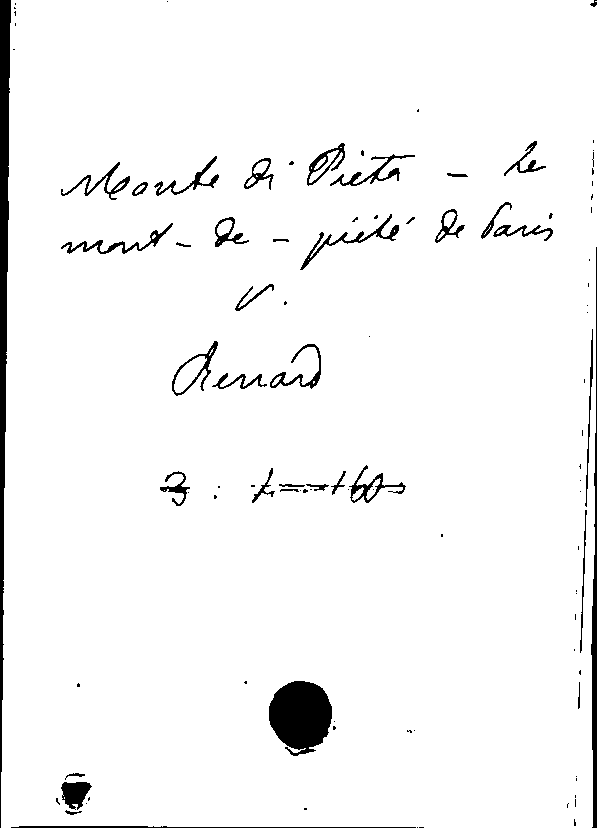 Monte di Pieta – Le
mont-de-piété de Paris
V.
Renard
3 :